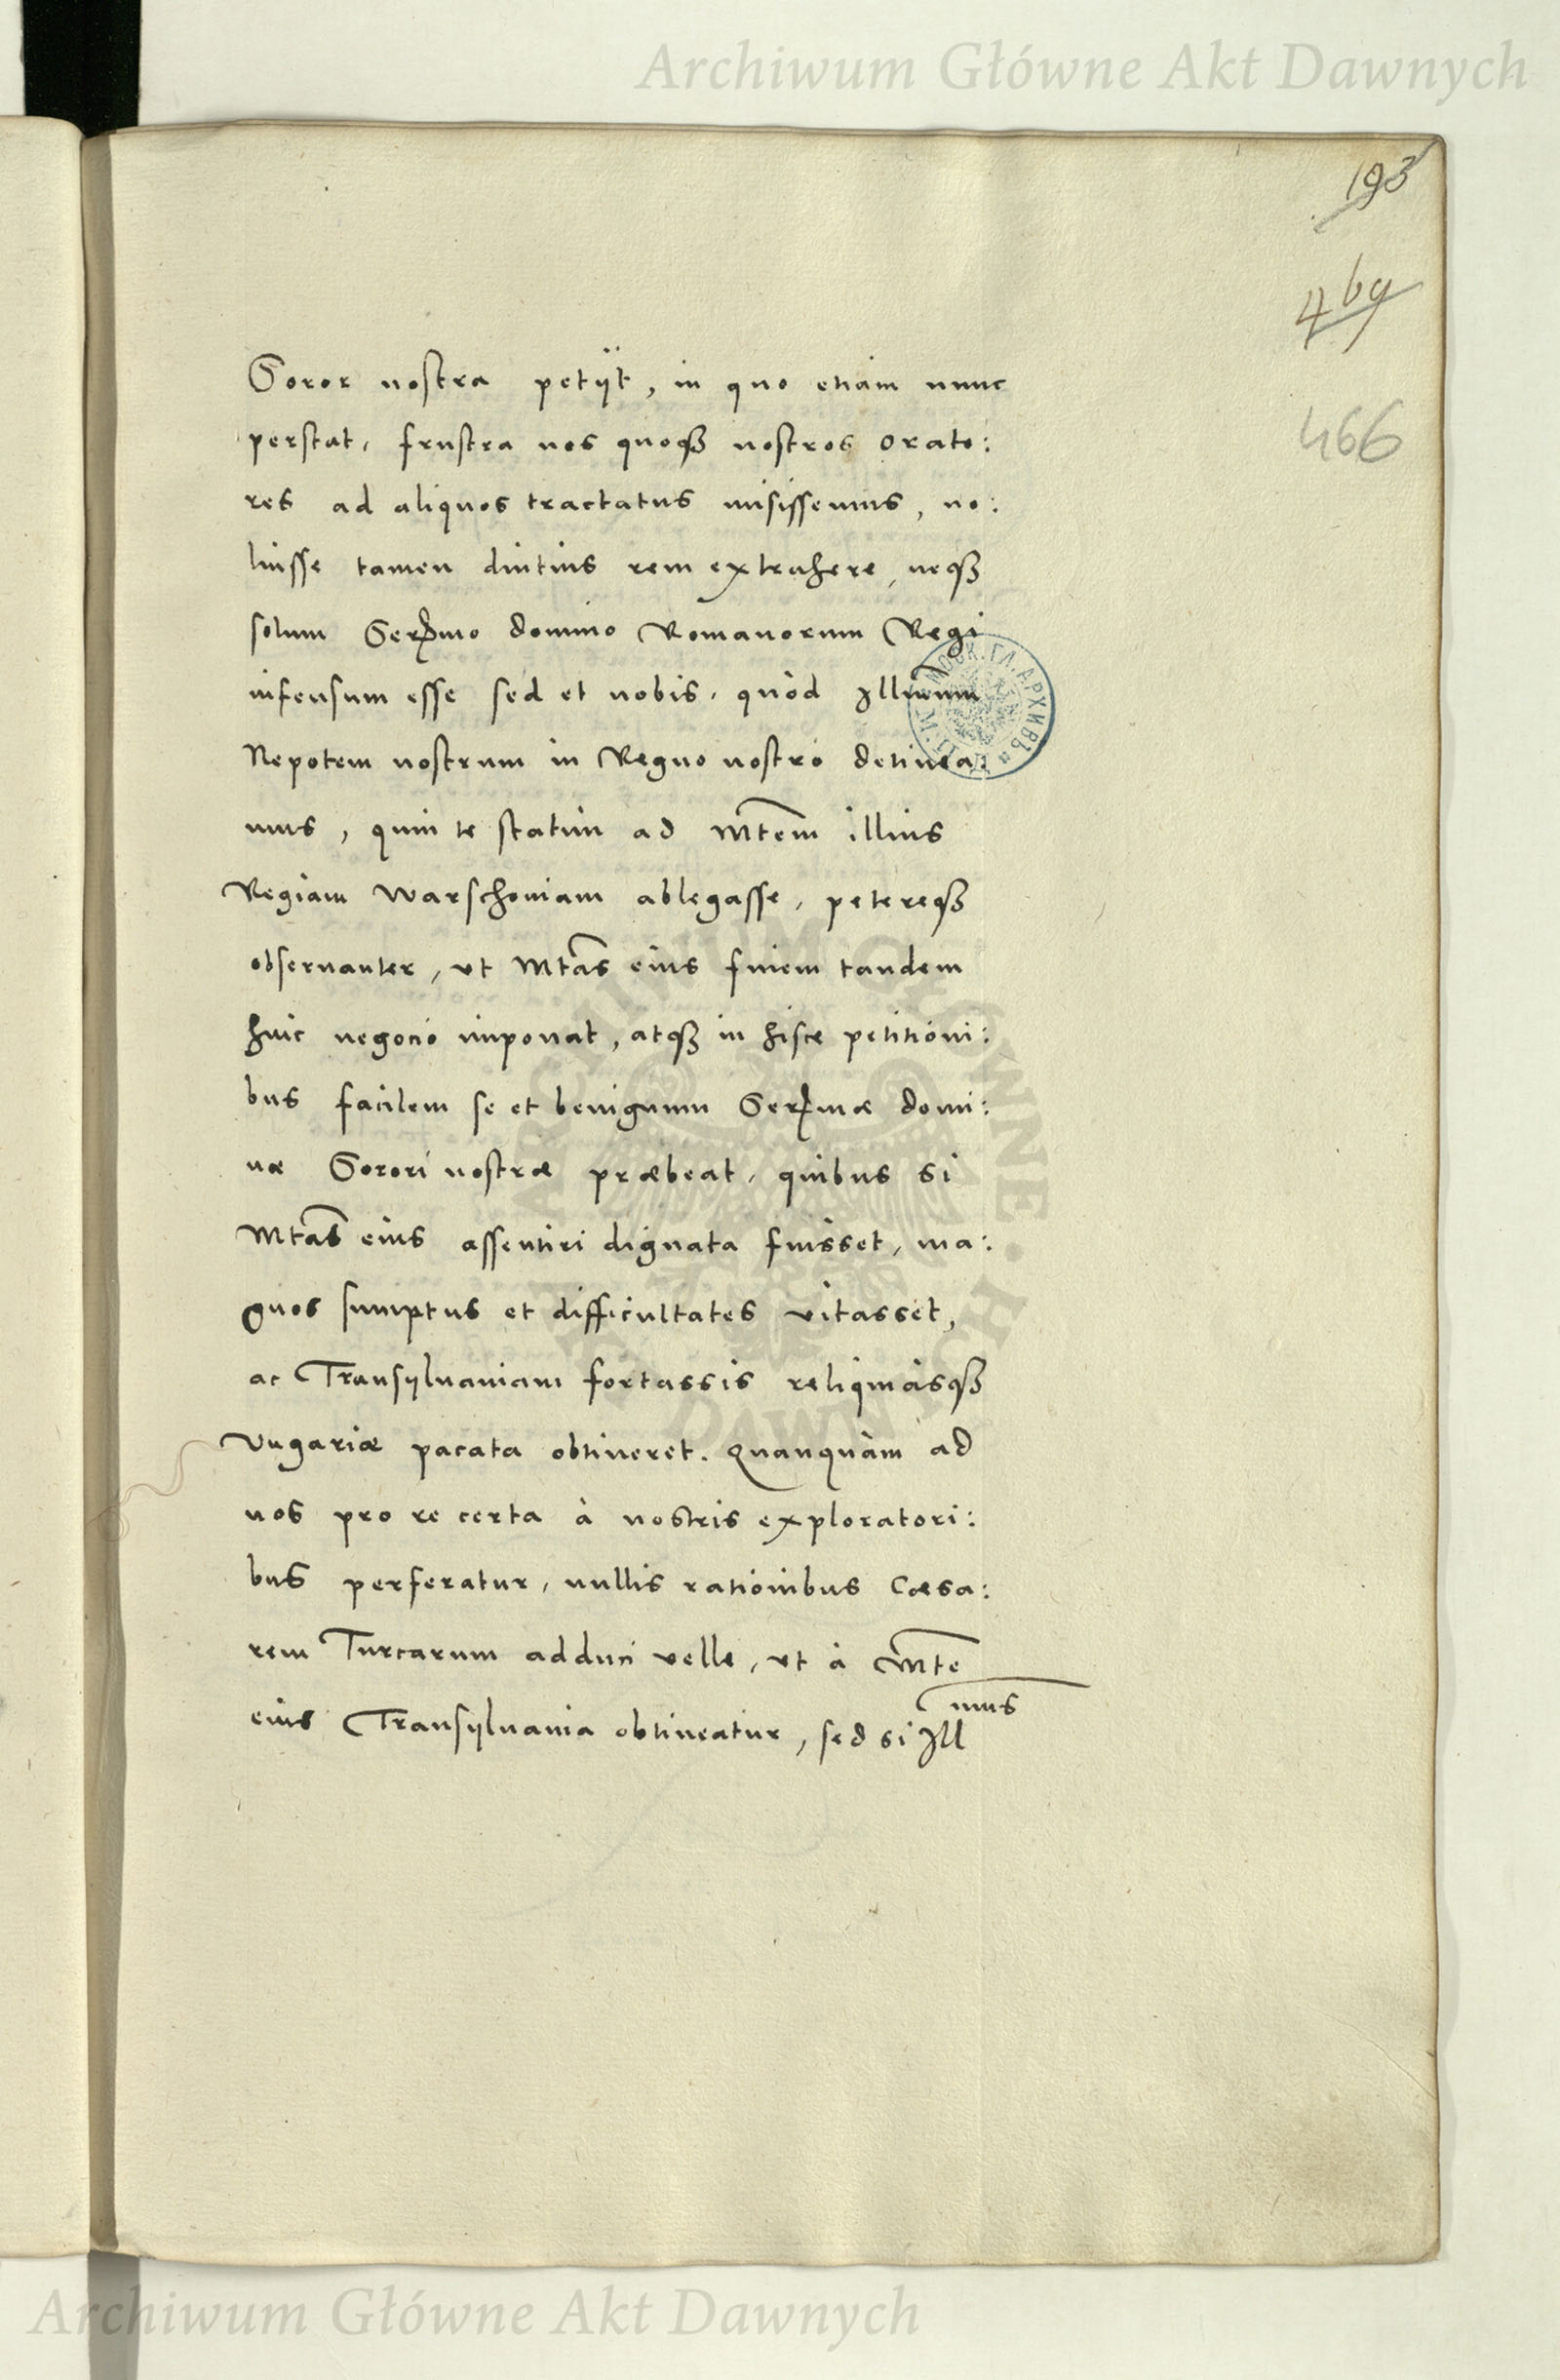 Archiwum Główne Akt Dawnych
193
469
466
Soror nostra petijt, in quo etiam nunc
perstat, frustra nos quoqꝫ nostros orato:
res ad aliquos tractatus misissemus, no:
luisse tamen diutius rem extrahere, neqꝫ
solum Serꝑmo domino Romanorum Regi
infensum esse sed et nobis, quòd Illmum
Nepotem nostrum in Regno nostro detinea:
mus, quin te statim ad Mtem illius
Regiam Warschoviam ablegasse, petereqꝫ
obseruanter, vt Mtas eius finem tandem
huic negocio imponat, atqꝫ in hisce petitioni:
bus facilem se et benignum Serꝑmæ domi:
næ Sorori nostræ præbeat, quibus si
Mtas eius assentiri dignata fuisset, ma:
gnos sumptus et difficultates vitasset,
ac Transyluaniam fortassis reliquasqꝫ
Vngariæ pacata obtineret. Quanquàm ad
nos pro re certa à nostris exploratori:
bus perferatur, nullis rationibus Cæsa:
rem Turcarum adduci velle, vt à Mte
eius Transyluania obtineatur, sed si Illmus
Archiwum Główne Akt Dawnych